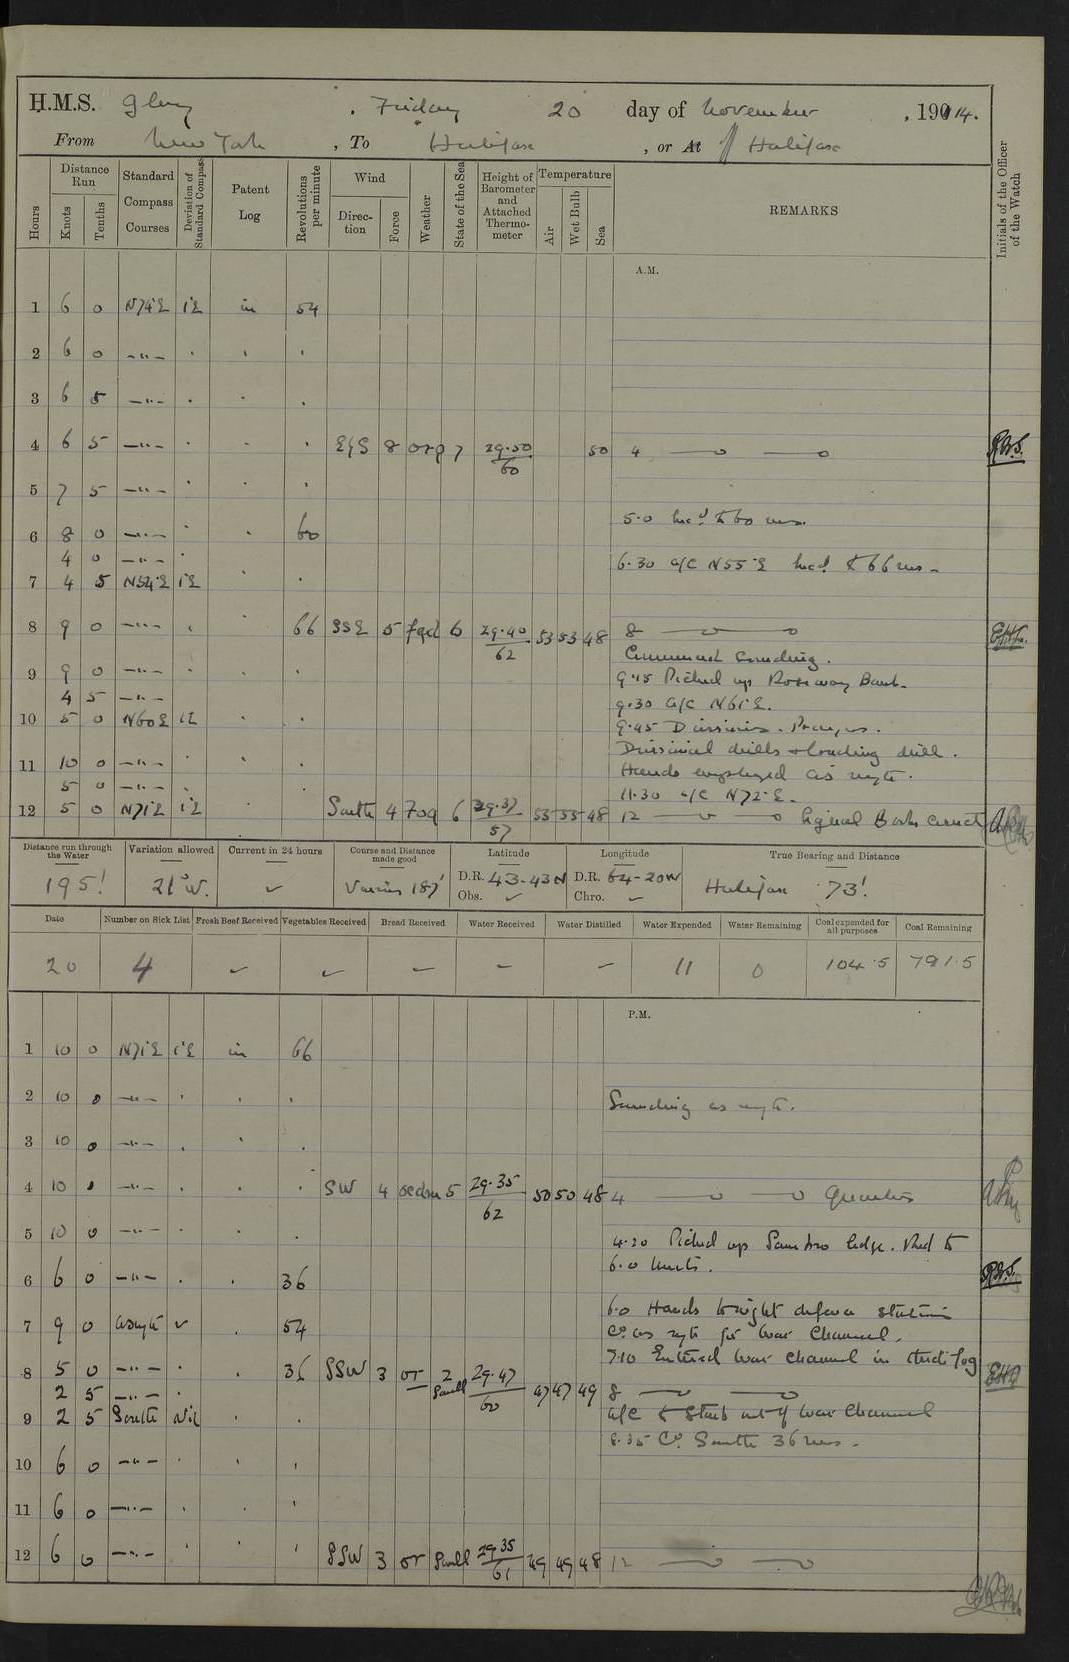 H.M.S. Glory, Friday 20 day of November, 1914.
From New York, To Halifax, or At off Halifax
Hours
Distance Run
Knots
Tenths
Standard Compass Courses
Deviation of Standard Compass
Patent Log
Revolutions per minute
Wind
Direction
Force
Weather
State of the Sea
Height of Barometer and Attached Thermometer
Temperature
Air
Wet Bulb
Sea
REMARKS
Initials of the Officer of the Watch
A.M.
1 6 0 N74°E 1°E in 54
2 6 0 –"–
3 6 5 –"–
4 6 5 –"– 8 org 7 29.50/60 50 4
5 7 5 –"–
5.0 Inc.d to 60 revs.
6 8 0 –"– 60
4 0 –"– 6.30 a/c N55°E Incd. to 66 revs –
7 4 5 N54°E 1°E
8 9 0 –"– 66 SSE 5 6 29.40/62 53 53 48 8
Commenced Sounding.
9 9 0 –"– 9.15 Picked up Roseway Bank.
4 5 –"– 9.30 a/c N61°E.
10 5 0 N60E 1E 9.45 Divisions. Prayers.
Divisional drills & loading drill.
11 10 0 –"– Hands employed as reqte.
5 0 –"– 11.30 a/c N72°E.
12 5 0 N71°E 1°E South 4 Fog 6 29.37/57 55 55 48 12 Signal Books correct
Distance run through the Water
195'
Variation allowed
21°W.
Current in 24 hours
✓
Course and Distance made good
Various 187'
Latitude
D.R. 43-43N
Obs. ✓
Longitude
D.R. 64-20W
Chro. ✓
True Bearing and Distance
Halifax 73'
Date
Number on Sick List
Fresh Beef Received
Vegetables Received
Bread Received
Water Received
Water Distilled
Water Expended
Water Remaining
Coal expended for all purposes
Coal Remaining
20 4 ✓ ✓ – – – 11 0 104.5 791.5
P.M.
1 10 0 N71°E 1°E in 66
2 10 0 –"– Sounding as reqte.
3 10 0 –"–
4 10 0 –"– SW 4 5 29.35/62 50 50 48 4 Quarters
5 10 0 –"– 4.20 Picked up Sambro ledge. Red to
6.0 knots.
6 6 0 –"– 36
6.0 Hands to night defence stations
7 9 0 as reqte ✓ 54 Co. as reqte for War Channel.
7.10 Entered War Channel in thick fog
8 5 0 –"– 36 SSW 3 or 2 Swell 29.47/60 47 47 49 8
2 5 –"–
9 2 5 South Nil a/c to Starb out of War Channel
8.35 Co. South 36 revs.
10 6 0 –"–
11 6 0 –"–
12 6 0 –"– SSW 3 or Swell 29.35/61 49 49 48 12